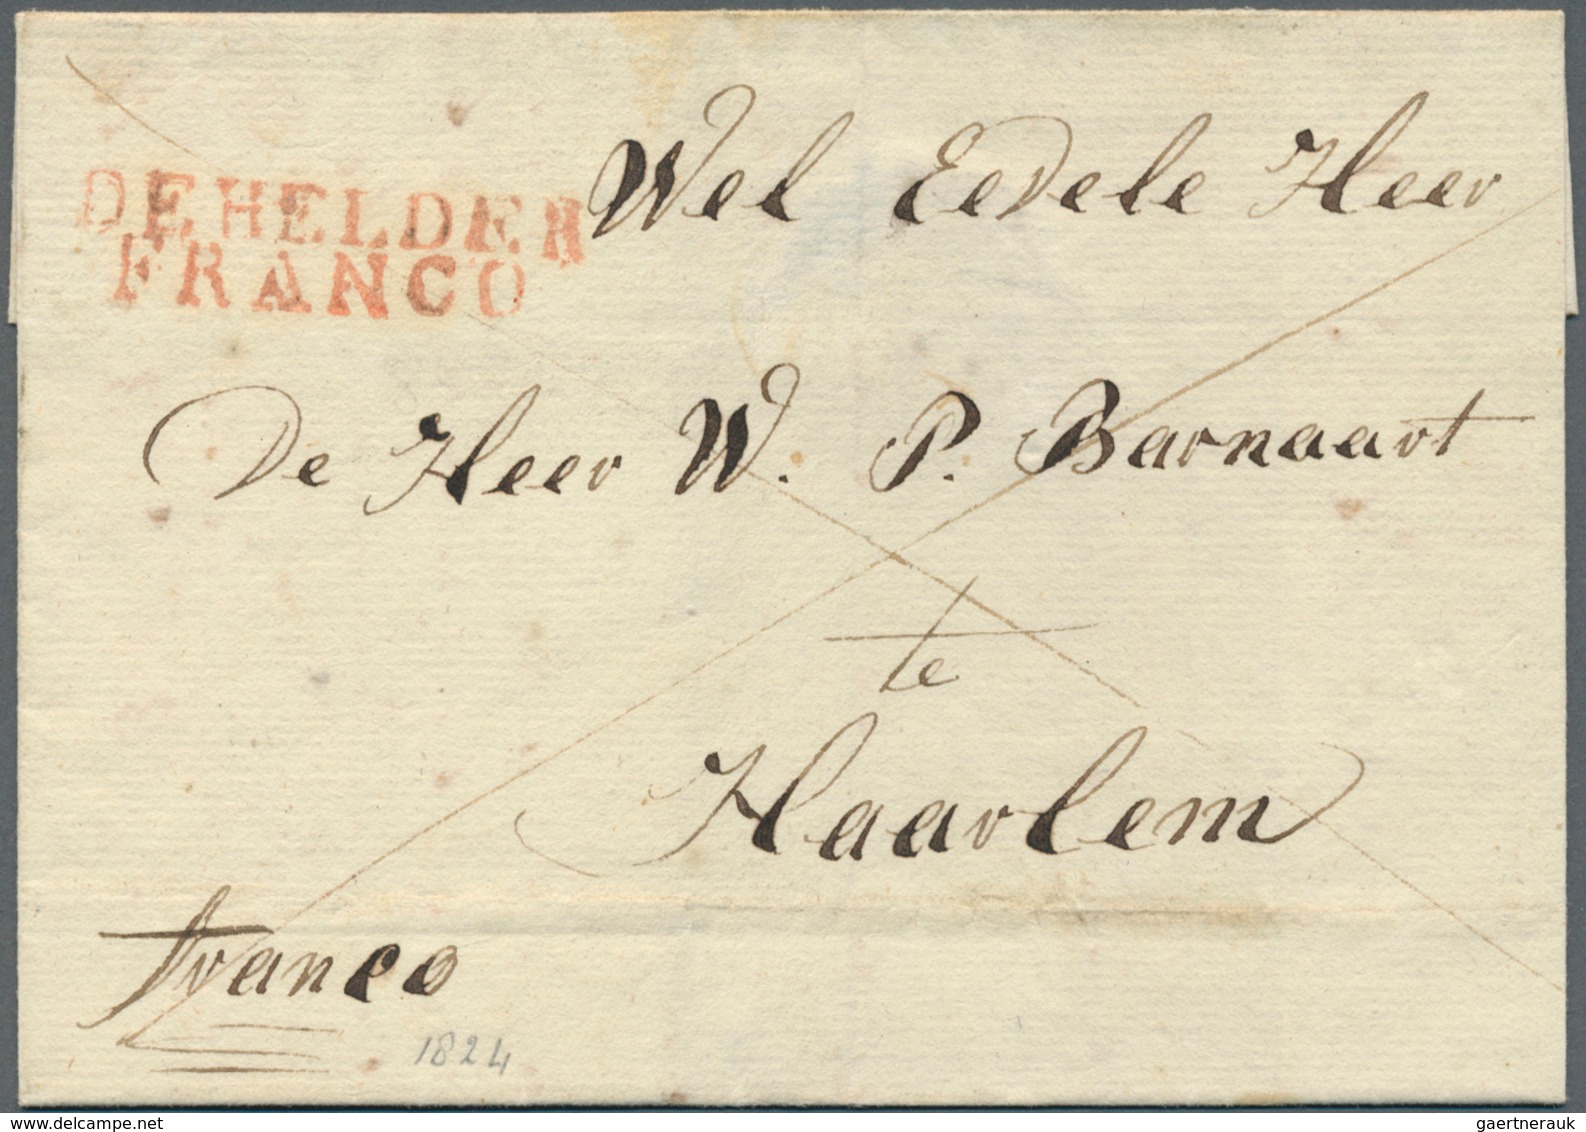 DE HELDER
FRANCO
Wel Eedele Heer
De Heer W. P. Barnaart
te
Haarlem
franco
1824
delcampe.net
gaertnerauk